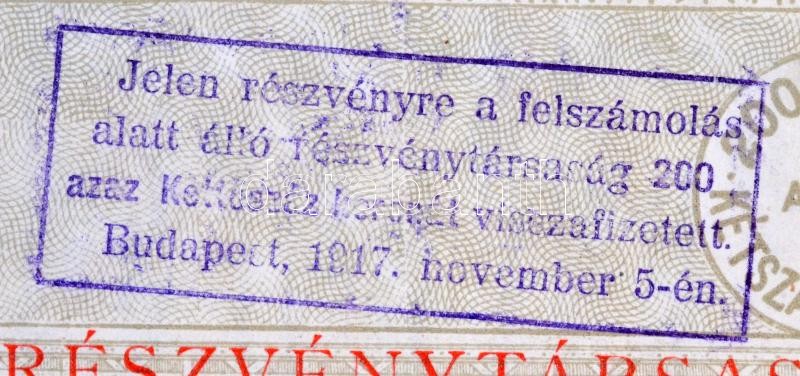 Jelen részvényre a felszámolás
alatt álló részvénytársaság 200
azaz Kettőszáz koronát visszafizetett.
Budapest, 1917. november 5-én.
200
KÉTSZÁ
RÉSZVÉNYTÁRSAS
darabanth